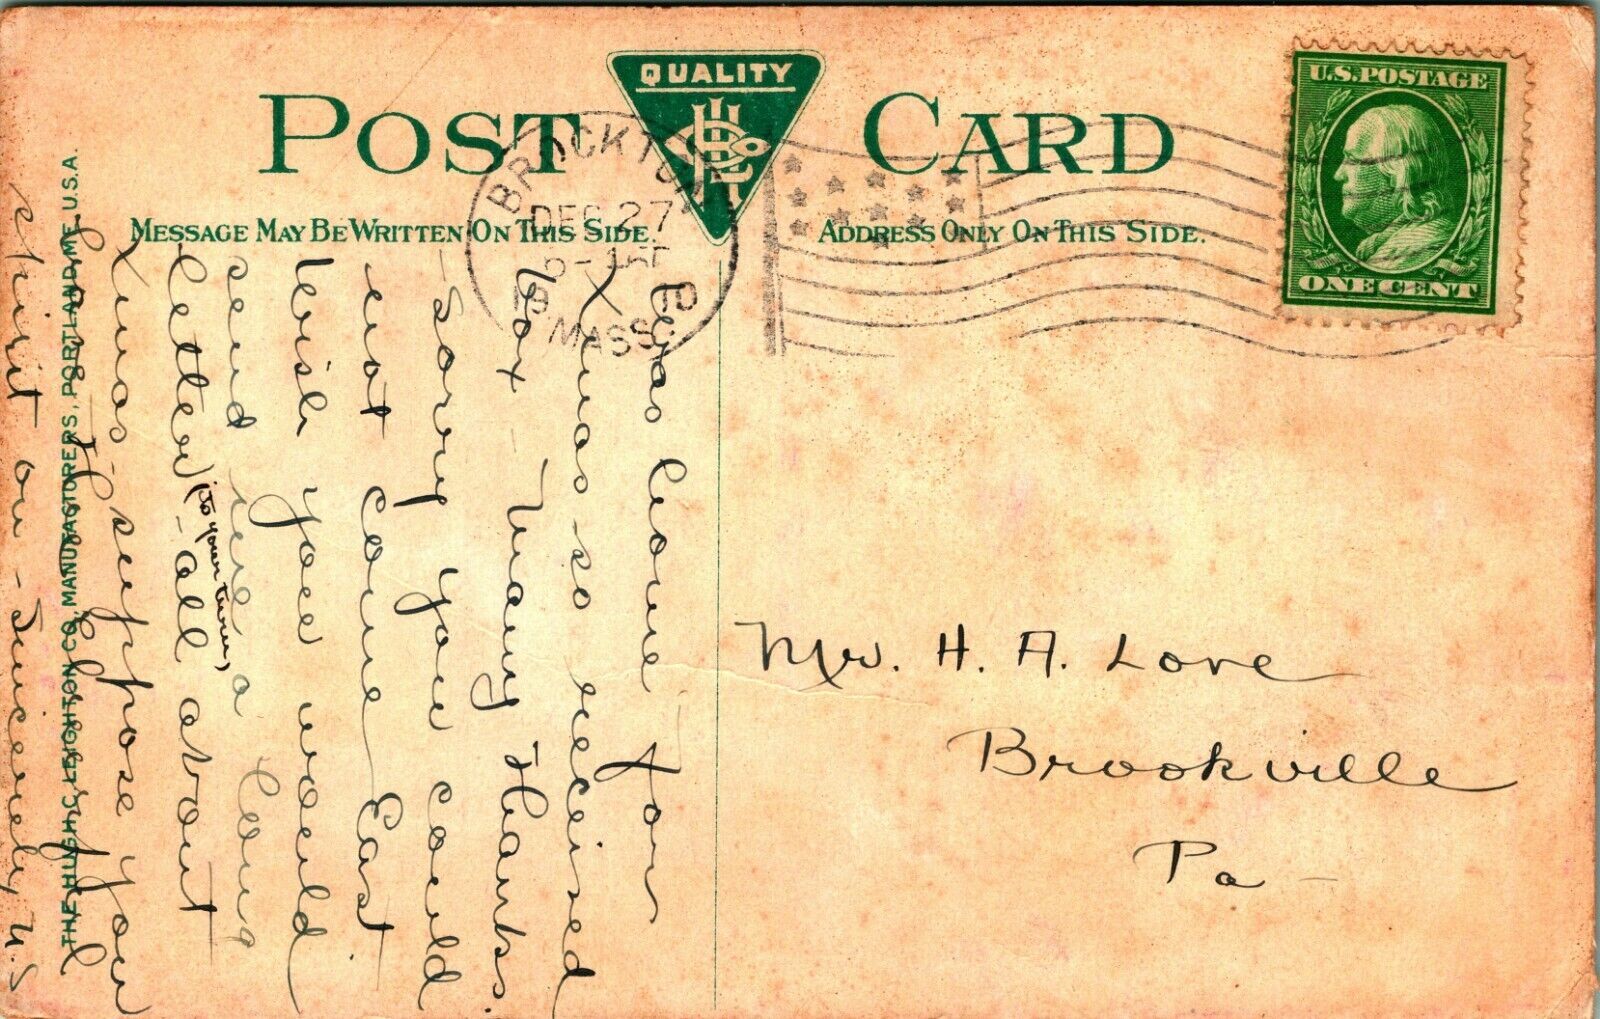 POST CARD
QUALITY
HLC
MESSAGE MAY BE WRITTEN ON THIS SIDE.
ADDRESS ONLY ON THIS SIDE.
U.S. POSTAGE
ONE CENT
BROCKTON
DEC 27
MASS.
THE HUGH C. LEIGHTON CO., MANUFACTURERS, PORTLAND, ME. U.S.A.
Was home for
Xmas - so received
box - Many Thanks.
- Sorry you could
not come East
Wish you would
send me a long
letter (to your turn) - all about
Xmas - suppose you
spirit on - Sincerely, U.S
Mr. H. A. Love
Brookville
Pa -